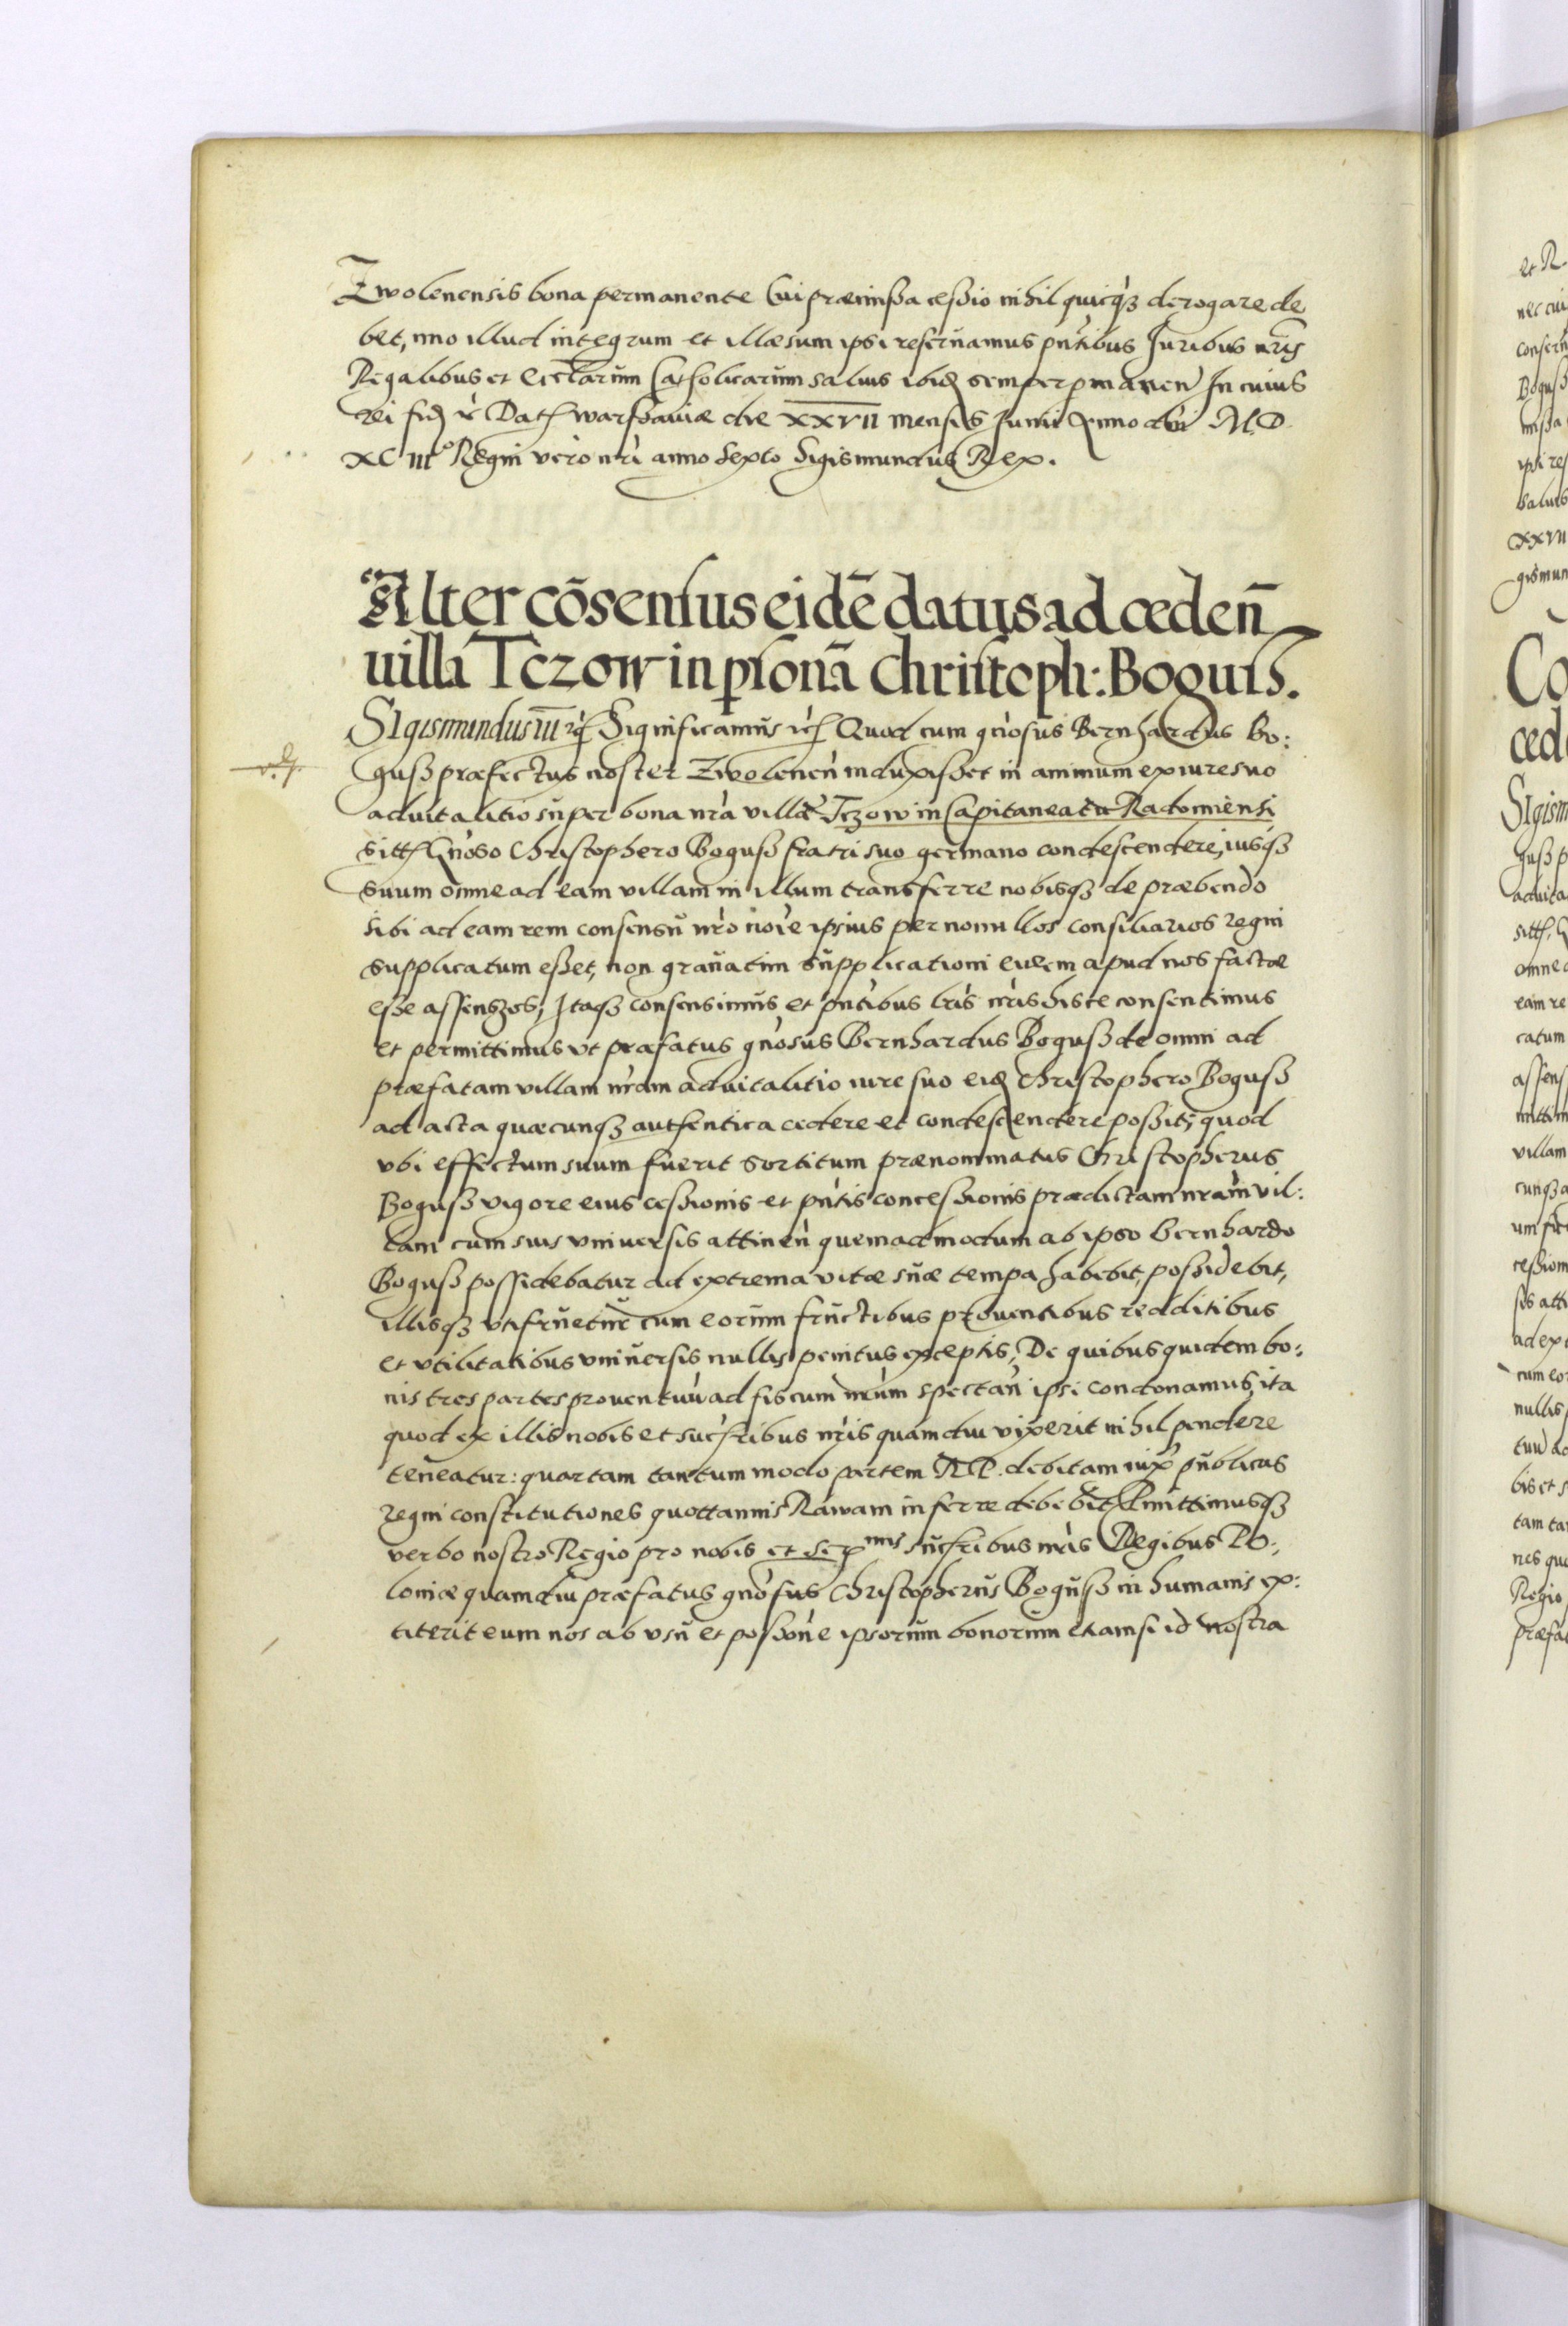 Zwolenensis bona permanente Cui præmissa cessio nihil quicq̃ȝ derogare de
bet, imo illud integrum et illæsum ipsi reserũamus pñtibus Iuribus nr̃is
Regalibus et Ecc̃larũm Catholicarũm salvis ibiđ semper pmaneñ In cuius
rei fiđ ẽ Dat Warschaviæ die XXVII mensis Iunii Anno dñi M.D.
XC IIIº Regni vero nr̃i anno sexto Sigismundus Rex.
Alter cõsensus eidẽ datus ad cedeñ
uillã Tczow in psonã Christoph: Bogusß.
SIgismundus III ꝛc̃ Significamũs ꝛc̃ Quod cum gñosũs Bernhardus Bo:
gusß præfectus noster Zwoleneñ induxisset in animum ex iure suo
advitalitio sũper bona nr̃a villæ Tczow in Capitaneatu Radomiensi
sitt Gñoso Christophero Bogusß fratri suo germano condescendere, iusqȝ
suum omne ad eam villam in illum transferre nobisqȝ de præbendo
sibi ad eam rem consensũ nr̃o noĩe ipsius per nonnullos consiliarios regni
supplicatum esset, non grañatim sũpplicationi eidem apud nos factæ
esse assensȝos; Itaqȝ consensimũs et pñtibus lr̃is nr̃is hisce consentimus
et permittimus vt præfatus gñosus Bernhardus Bogusß de omni ad
præfatam villam nr̃am advitalitio iure suo eiđ Christophero Bogusß
ad acta quæcunqȝ authentica cedere et condescendere possit; quod
vbi effectum suum fũerit sortitum prænominatus Christopherus
Bogusß vigore eius cessionis et pñtis concessionis prædictam nr̃am vil:
lam cum suis vniversis attineñ quemadmodum ab ipso Bernhardo
Bogusß possidebatur ad extrema vitæ sũæ tempa habebit, possidebit,
illisqȝ vtifrũetũr cum eorũm frũctibus proventibus redditibus
et vtilitatibus vniũersis nullis penitus exceptis, De quibus quidem bo:
nis tres partes proventuũ ad fiscum nr̃um spectañ ipsi condonamus, ita
quod ex illis nobis et sucr̃ibus nr̃is quamdiu vixerit nihil pendere
teneatur: quartam tantummodo partem R.P. debitam iuxª pũblicas
regni constitutiones quottannis Rawam inferre debebit Pmittimusqȝ
verbo nostro Regio pro nobis et Serᵐⁱˢ sũcr̃ibus nr̃is Regibus Po:
loniæ quamdiũ præfatus gñosus Christopherũs Bogũsß in humanis ex:
titerit eum nos ab vsũ et possiõne ipsorũm bonorũm etiamsi id nostra